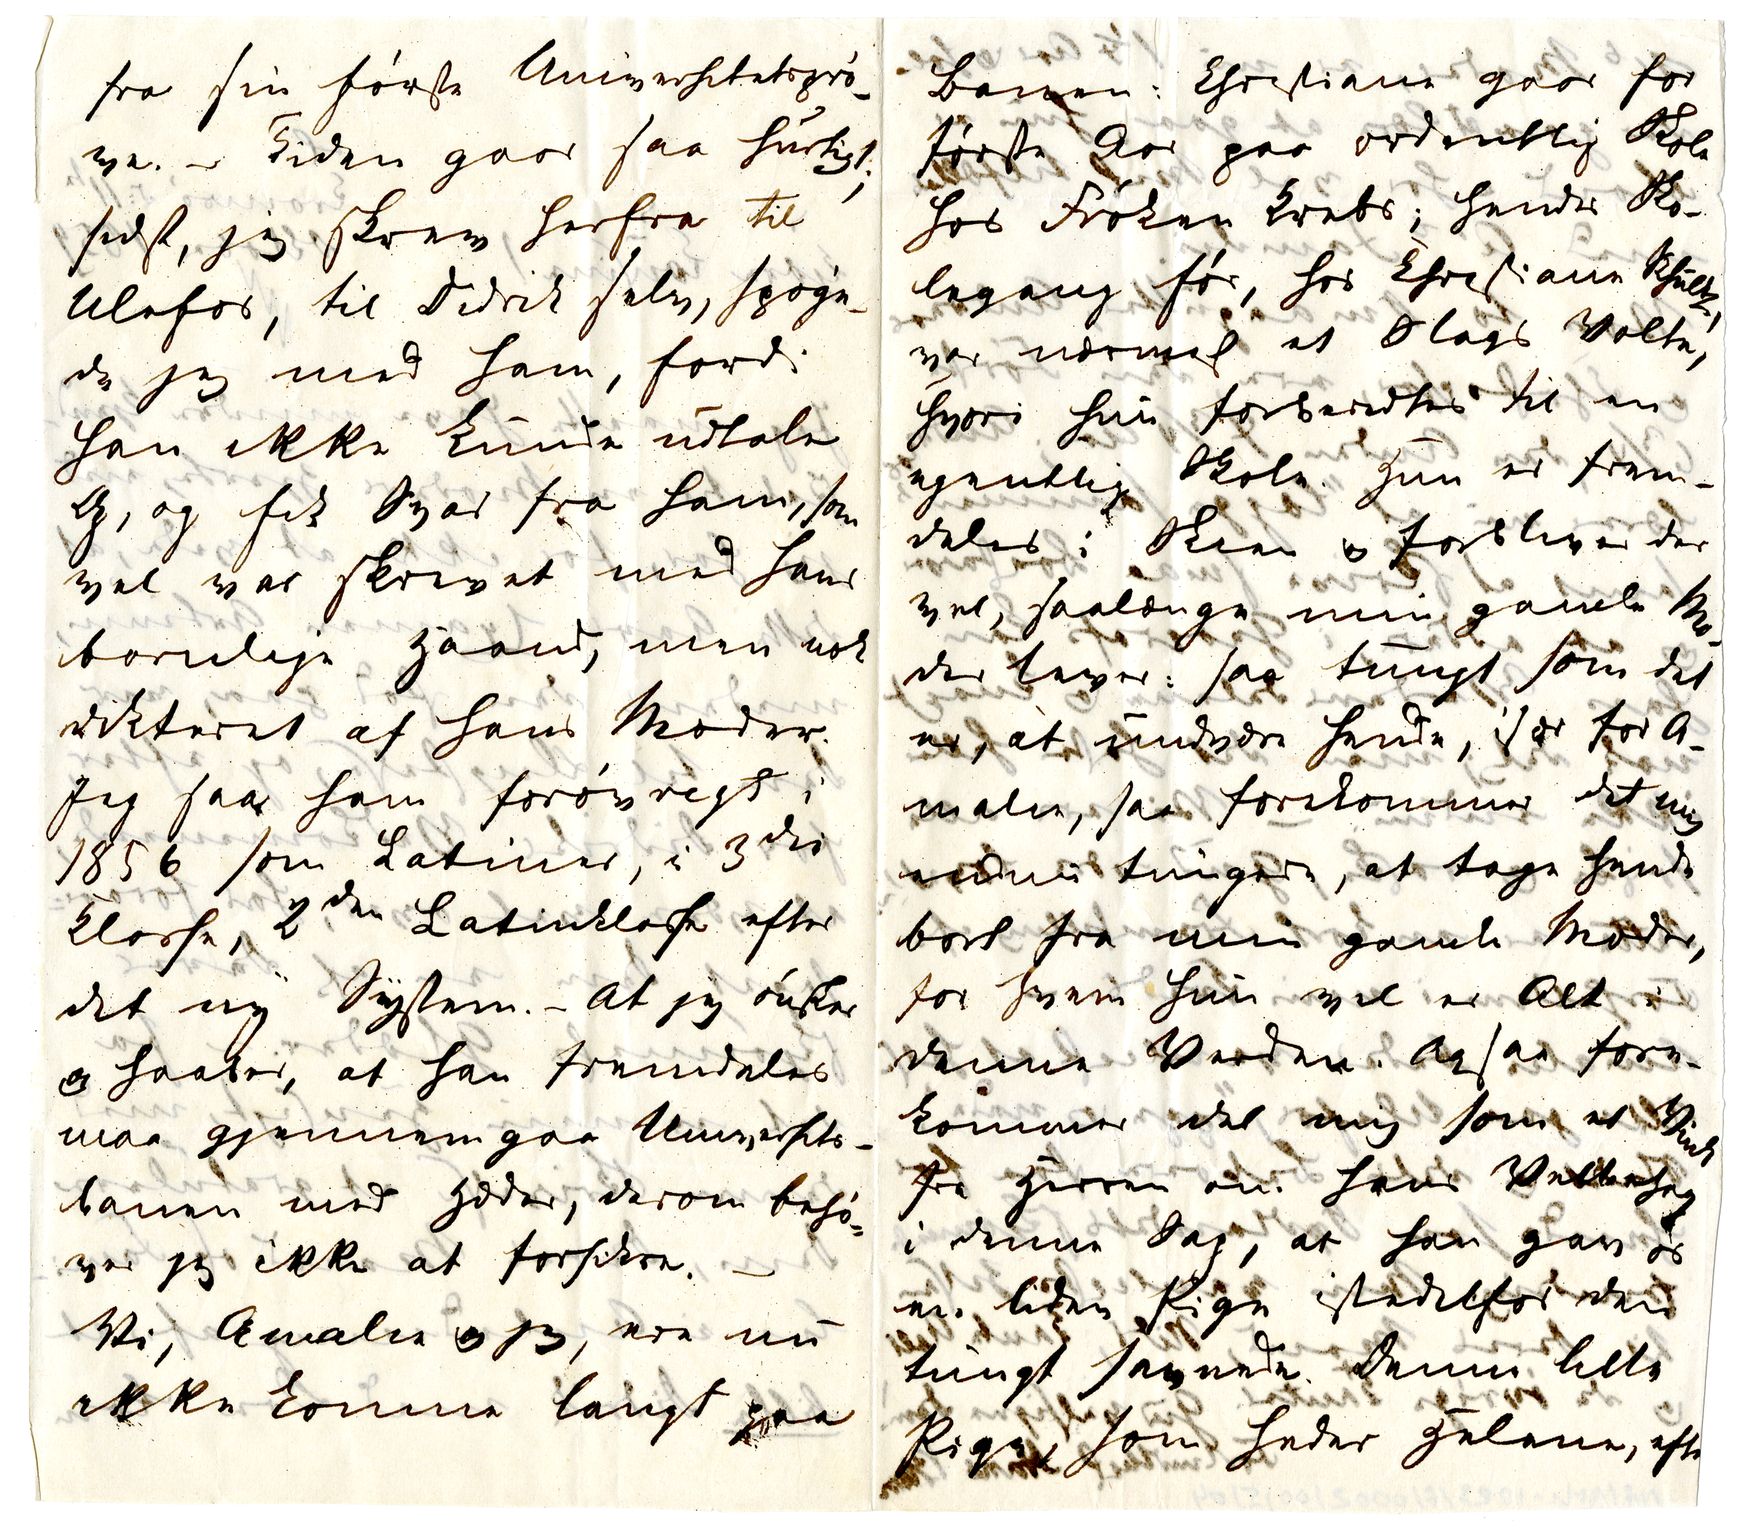 fra sin förste Universitetsprö-
ve. – Tiden gaar saa hurtigt;
sidst, jeg skrev herfra til
Ulefos, til Didrik selv, spögе-
de jeg med ham, fordi
han ikke kunde udtale
G, og fik Svar fra ham, som
vel var skrevet med hans
barnlige Haand, men nok
dikteret af hans Moder.
Jeg saae ham forövrigt i
1856 som Latiner, i 3die
Klasse, 2den Latinklasse efter
det ny System. – At jeg önsker
og haaber, at han fremdeles
maa gjennemgaa Universitets-
banen med Hæder, derom behö-
ver jeg ikke at forsikre. –
Vi, Amalie og jeg, ere nu
ikke komne langt paa
Banen: Christiane gaar for
förste Aar paa ordentlig Skole
hos Fröken Krebs; hendes Sko-
legang för, hos Christiane Schultz,
var nærmest et Slags Volte,
hvori hun forberedtes til en
egentlig Skole. Hun er frem-
deles i Skien og forbliver der
vel, saalænge min gamle Mo-
der lever: saa tungt som det
er, at undvære hende, især for A-
malie, saa forekommer det mig
endnu tungere, at tage hende
bort fra min gamle Moder,
for hvem hun vel er Alt i
denne Verden. Ogsaa fore-
kommer det mig som et Vink
fra Herren om hans Velbehag
i denne Sag, at han gav os
en liden Pige istedetfor den
tungt savnede. Denne lille
Pige, som heder Helene, efter